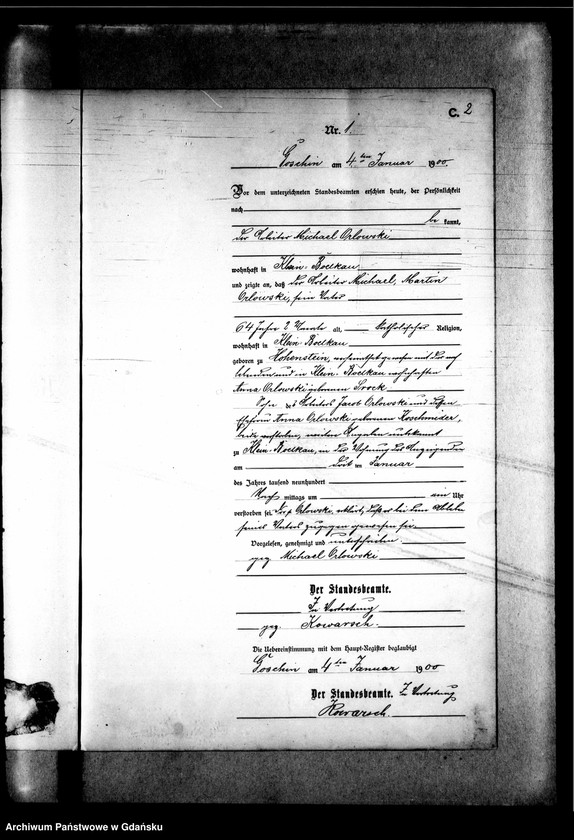 C. 2
Nr. 1.
Goschin am 4ten Januar 1900
Vor dem unterzeichneten Standesbeamten erschien heute, der Persönlichkeit
nach
be kannt,
der Arbeiter Michael Orlowski
wohnhaft in Klein-Boelkau
und zeigte an, daß der Arbeiter Michael, Martin
Orlowski, sein Vater
64 Jahre 2 Monate alt, katholischer Religion,
wohnhaft in Klein Boelkau
geboren zu Hohenstein, verheirathet gewesen mit der noch
lebenden und in Klein-Boelkau wohnhaften
Anna Orlowski geborenen Srock
Sohn des Arbeiters Jacob Orlowski und dessen
Ehefrau Anna Orlowski geborenen Koschnider,
beide verstorben, weitere Angaben unbekannt
zu Klein-Boelkau, in der Wohnung des Anzeigenden
am Januar
des Jahres tausend neunhundert
Nach mittags um ein Uhr
verstorben sei. Der p. Orlowski erklärt, daß er bei dem Ableben
seines Vaters zugegen gewesen sei.
Vorgelesen, genehmigt und unterschrieben
gez. Michael Orlowski
Der Standesbeamte.
In Vertretung
gez. Kowarsch.
Die Uebereinstimmung mit dem Haupt-Register beglaubigt
Goschin am 4ten Januar 1900
Der Standesbeamte. In Vertretung
Kowarsch.
Archiwum Państwowe w Gdańsku